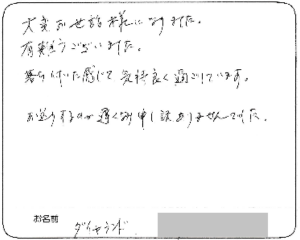 大変お世話様になりました。
有難うございました。
落ち付いた感じで気持良く過ごしています。
お送りするのが遅くなり申し訳ありませんでした。
お名前
ダイヤランド